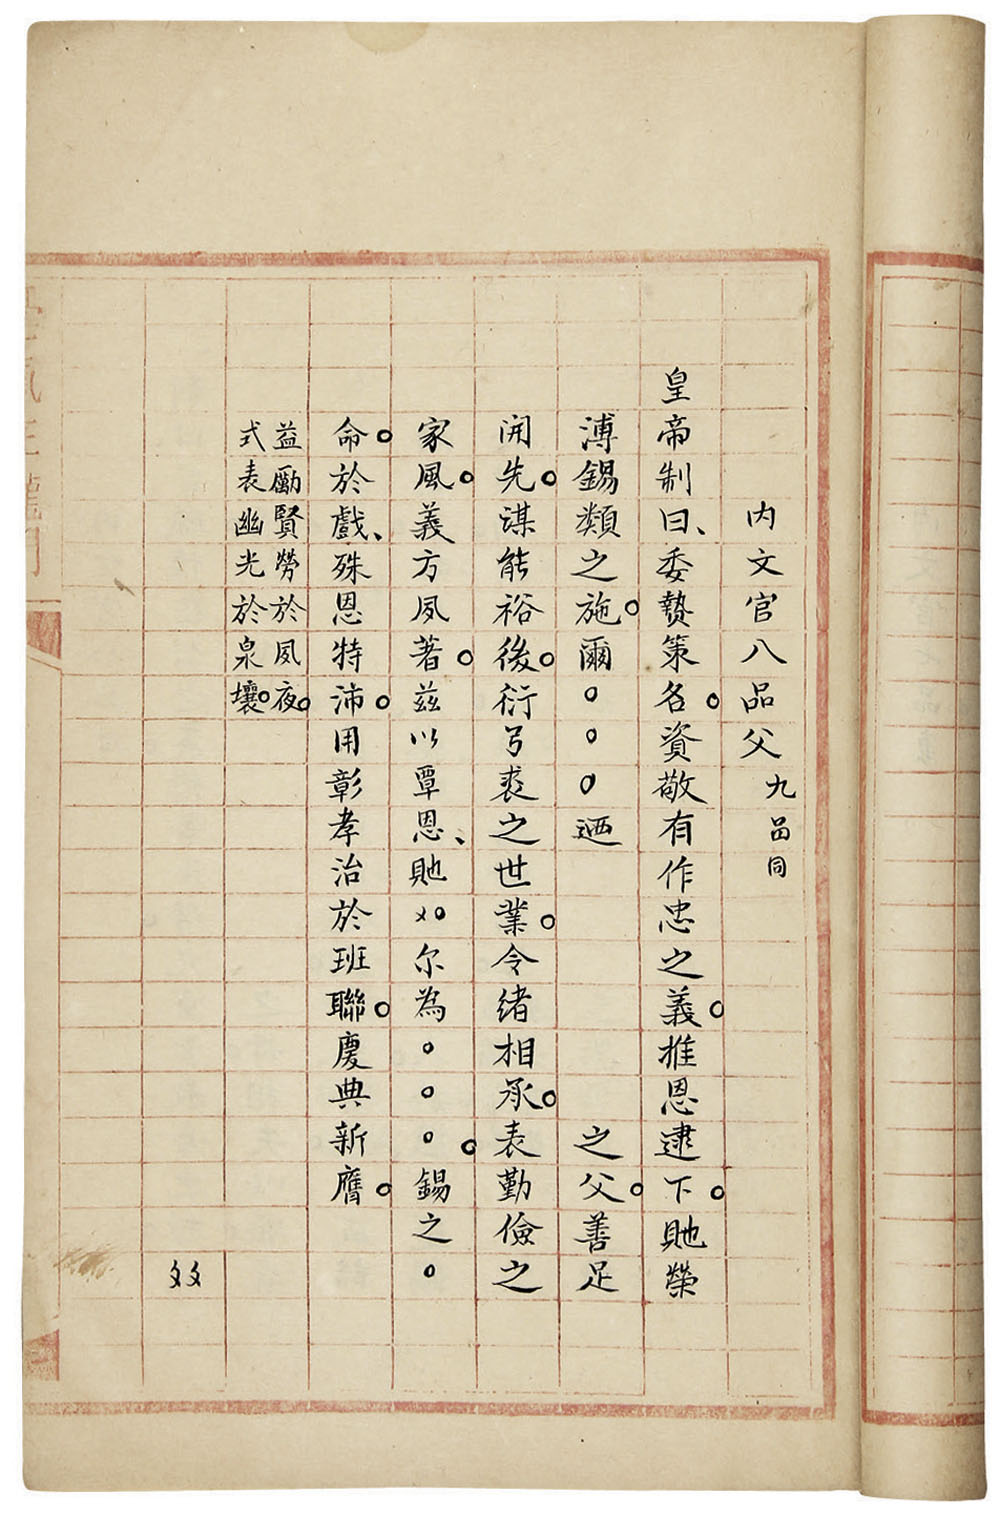 内文官八品父九品同
皇帝制曰、委贄策名。資敬有作忠之義。推恩逮下。貤榮
溥錫類之施。爾○○○廼 之父。善足
開先。謀能裕後。衍弓裘之世業。令緒相承。表勤儉之
家風。義方夙著。茲以覃恩、貤○尔為○○○。錫之○
命。於戲、殊恩特沛。用彰孝治於班聯。慶典新膺。
益勵賢勞於夙夜。
式表幽光於泉壤。